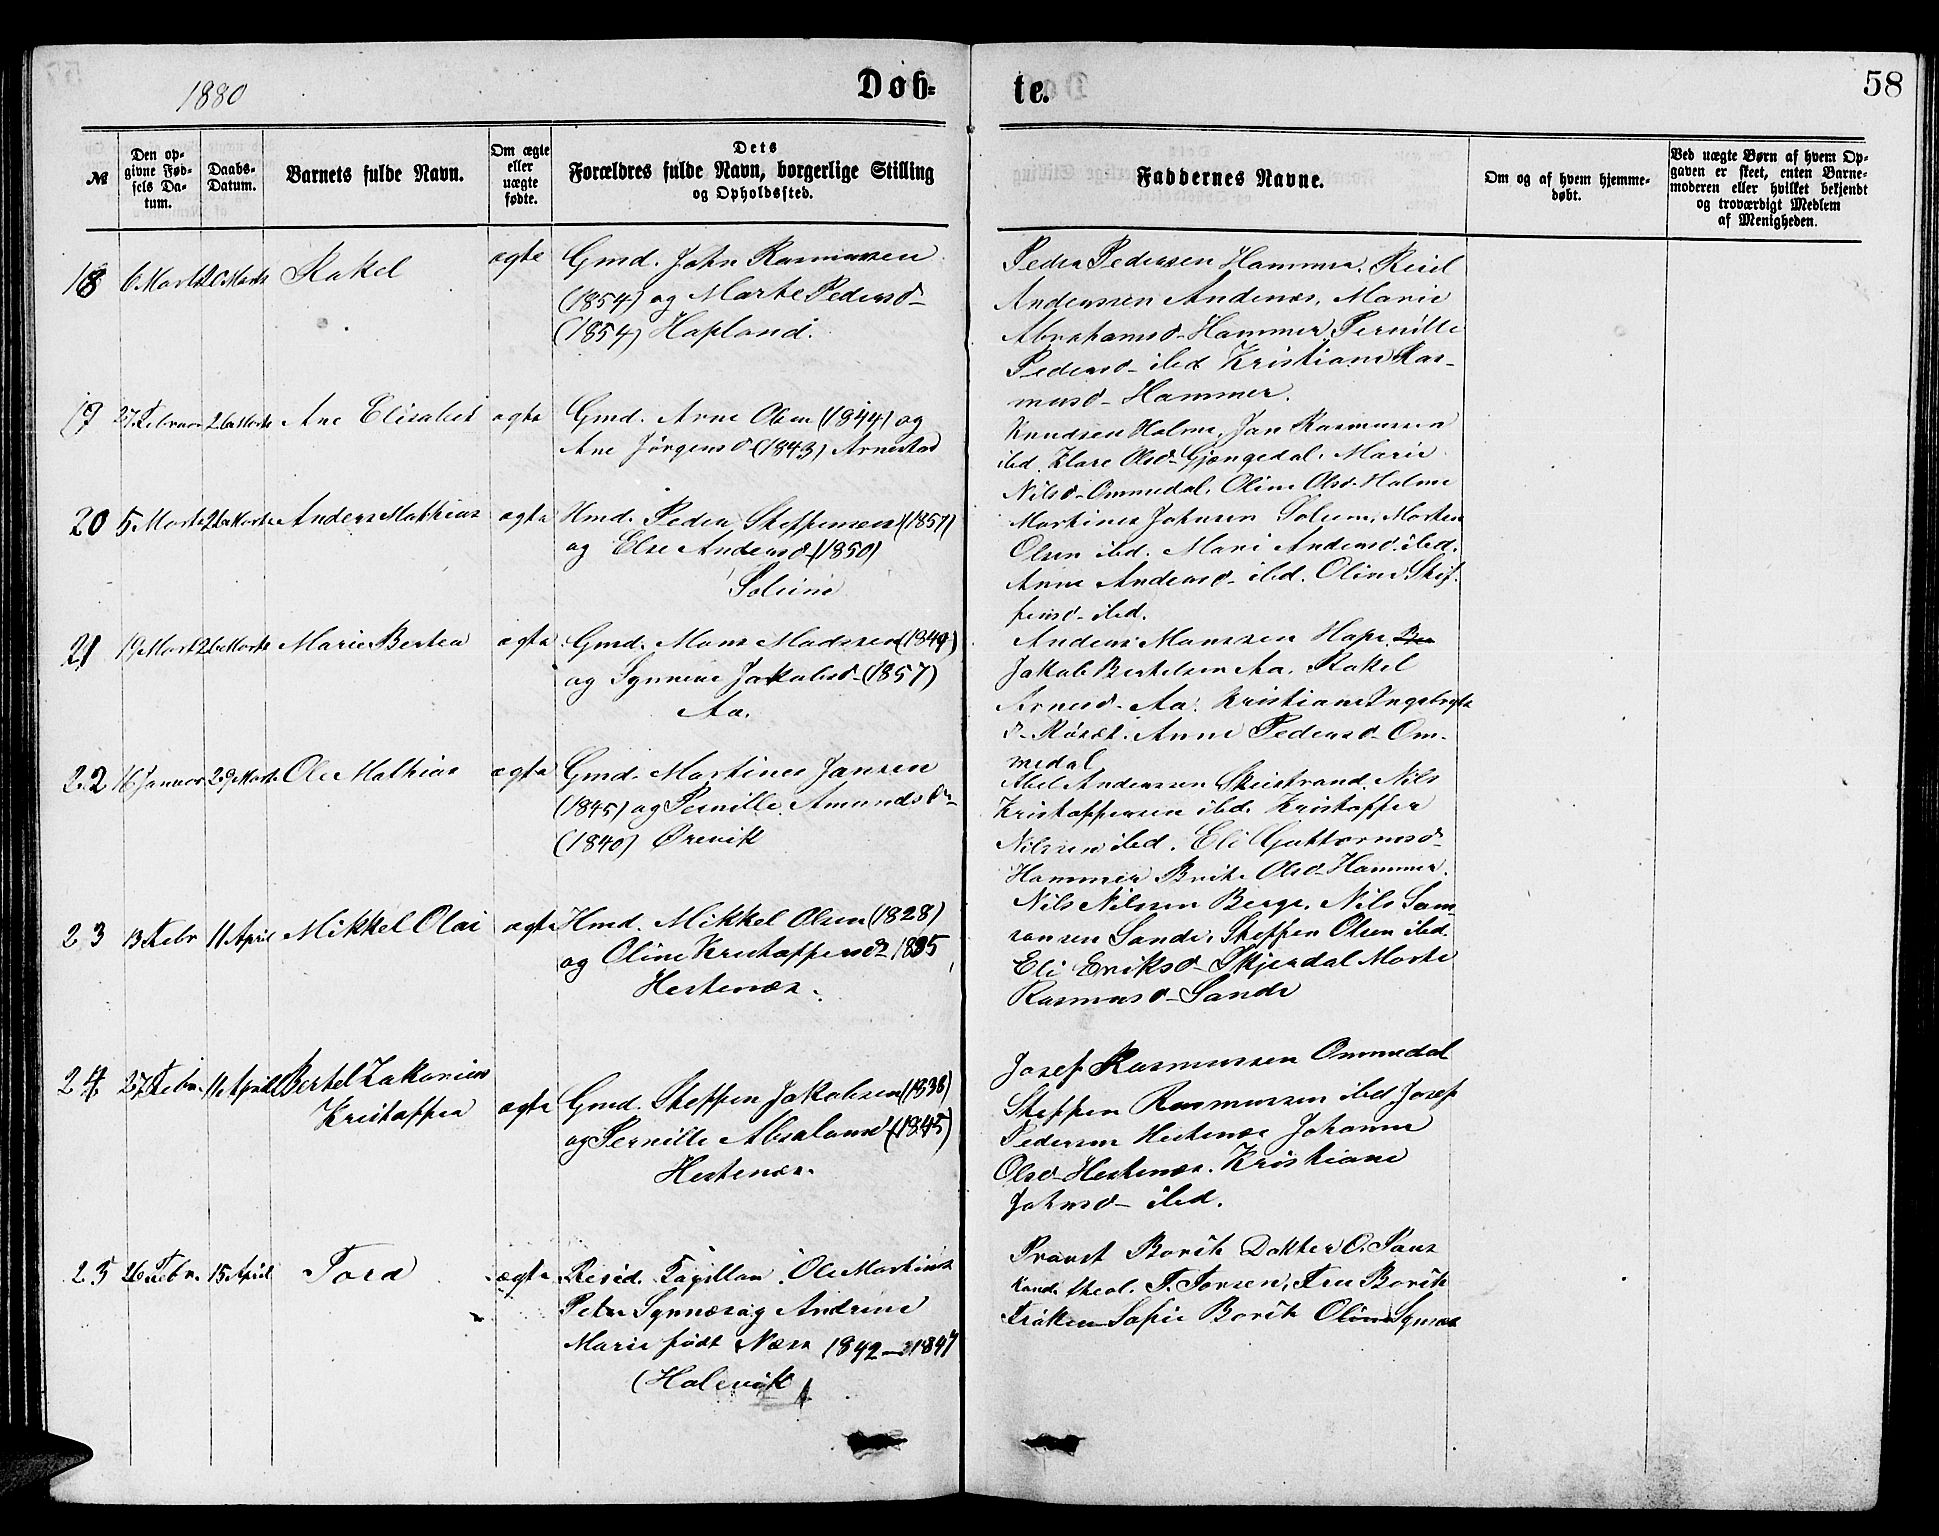 1880
Døb-
te.
58
№
Den op-
givne Fød-
sels Da-
tum.
Daabs-
Datum.
Barnets fulde Navn.
Om ægte
eller
uægte
fødte.
Dets
Forældres fulde Navn, borgerlige Stilling
og Opholdssted.
Faddernes Navne.
Om og af hvem hjemme-
døbt.
Ved uægte Børn af hvem Op-
gaven er skeet, enten Barne-
moderen eller hvilket bekjendt
og troværdigt Medlem
af Menigheden.
18 6 Marts 20 Marts Rakel ægte
Gmd. John Rasmussen
(1854) og Marte Pedersd-
(1854) Hapland.
Peder Pedersen Hammer.
Anderssen Andenes, Marie
Abrahamsd- Hammer, Pernille
Pedersd- ibd Kristiane Ras-
musd- Hammer.
19 27 Februar 26 Marts Ane Elisabet ægte
Gmd. Arne Olsen (1844) og
Ane Jørgensd (1843) Arnestad
Knudsen Holme, Jan Rasmussen
ibd. Klare Olsd- Gjengedal, Marie
Nilsd- Ommedal, Oline Olsd- Holme
20 5 Marts 26 Marts Anders Mathias ægte
Hmd. Peder Steffensen (1857)
og Else Andersd- (1850)
Soleim
Martines Johnsen Soleim, Morten
Olsen ibd. Mari Andersd. ibd.
Anne Andersd- ibd. Oline Stef-
fensd- ibd.
21 19 Marts 26 Marts Marie Bertea ægte
Gmd. Mons Madssen (1849)
og Synneve Jakobsd- (1857)
Aa.
Anders Monssen Hope.
Jakob Bertelsen Aa. Rakel
Arnesd- Aa. Kristiane Ingebrigts
d- Røset. Anne Pedersd- Om-
medal
22 16 Januar 29 Marts Ole Mathias ægte
Gmd. Martines Jansen
(1845) og Pernille Amundsd-
(1840) Ørevik
Abel Anderssen Skeistrand. Nils
Kristoffersen ibd. Kristoffer
Nilssen ibd. Eli Guttormsd-
Hammer Brite Olsd- Hammer.
23 13 Febr 11 April Mikkel Olai ægte
Hmd. Mikkel Olsen (1828)
og Oline Kristoffersd- 1835
Hestenes.
Nils Nilssen Berge, Nils Sam-
sonsen Sande, Steffen Olsen ibd.
Eli Eriksd- Skjerdal Marte
Rasmusd- Sande
24 27 Febr. 11 April Bertel Zakarias
Kristoffer ægte
Gmd. Steffen Jakobsen (1838)
og Pernille Absalonsd- (1845)
Hestenes.
Josef Rasmussen Ommedal
Steffen Rasmussen ibd Josef
Pedersen Hestenes Johanne
Olsd- Hestenes. Kristiane
Johnsd- ibd.
25 26 Febr. 15 April Tord ægte
Resid. Kapellan Ole Martinus
Peter Synnes og Andrine
Marie født Næss 1842 - 1847
(Holevik
Provst Borch Dokter O. Paus
Kand. theol. T. Torsen, Fru Borch
Frøken Sofie Borch Oline Synnes